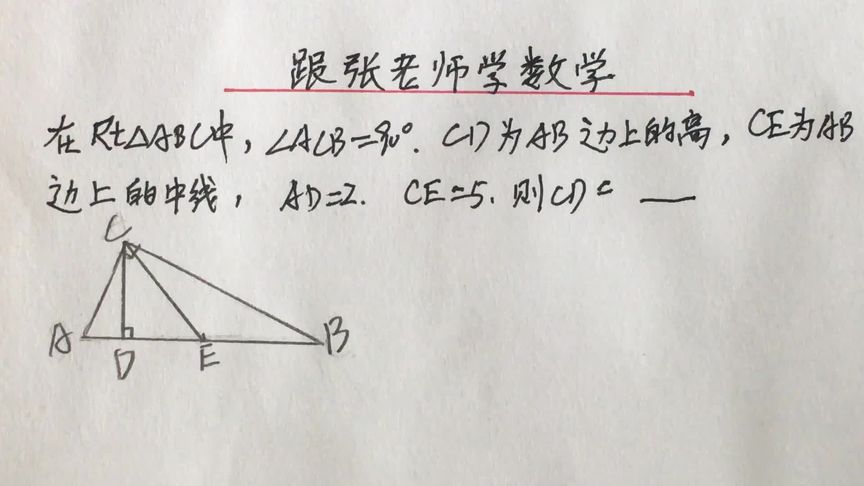 跟张老师学数学
在Rt△ABC中，∠ACB=90°. CD为AB边上的高，CE为AB
边上的中线，AD=2. CE=5. 则CD=
C
A
D
E
B